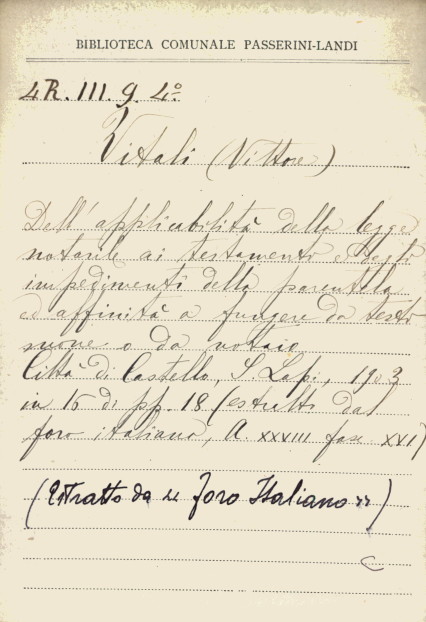 BIBLIOTECA COMUNALE PASSERINI-LANDI
4R. III. 9. 4º
Vitali (Vittore)
Dell'applicabilità della legge
notarile ai testamento e degli
impedimenti della parentela
ed affinità a fungere da testi
mone o da notaio
Città di Castello, S. Lapi, 1903
in 16 di pp. 18 (estratti dal
foro italiano, A. XXVIII fasc. XVI)
(Estratto da « Foro Italiano »)
C